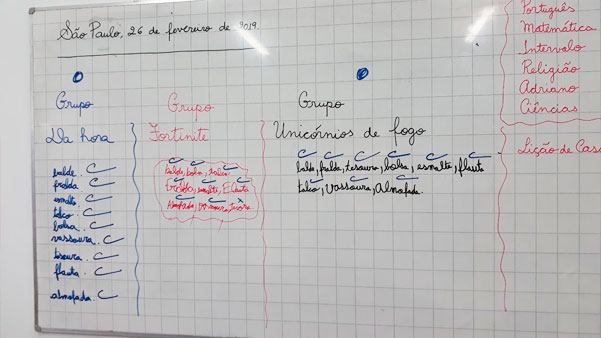 São Paulo, 26 de fevereiro de 2019
Grupo
Da hora
balde. C
fralda. C
esmalte. C
talco. C
bolsa. C
vassoura. C
tesoura. C
flauta. C
almofada. C
Grupo
Fortinite
balde, bolsa, talco
fralda, esmalte, Flauta
Almofada, vassoura, tesoura
Grupo
Unicórnios de fogo
balde, fralda, tesoura, bolsa, esmalte, flauta
talco, vassoura, Almofada.
Português
Matemática
Intervalo
Religião
Adriano
Ciências
Lição de Casa